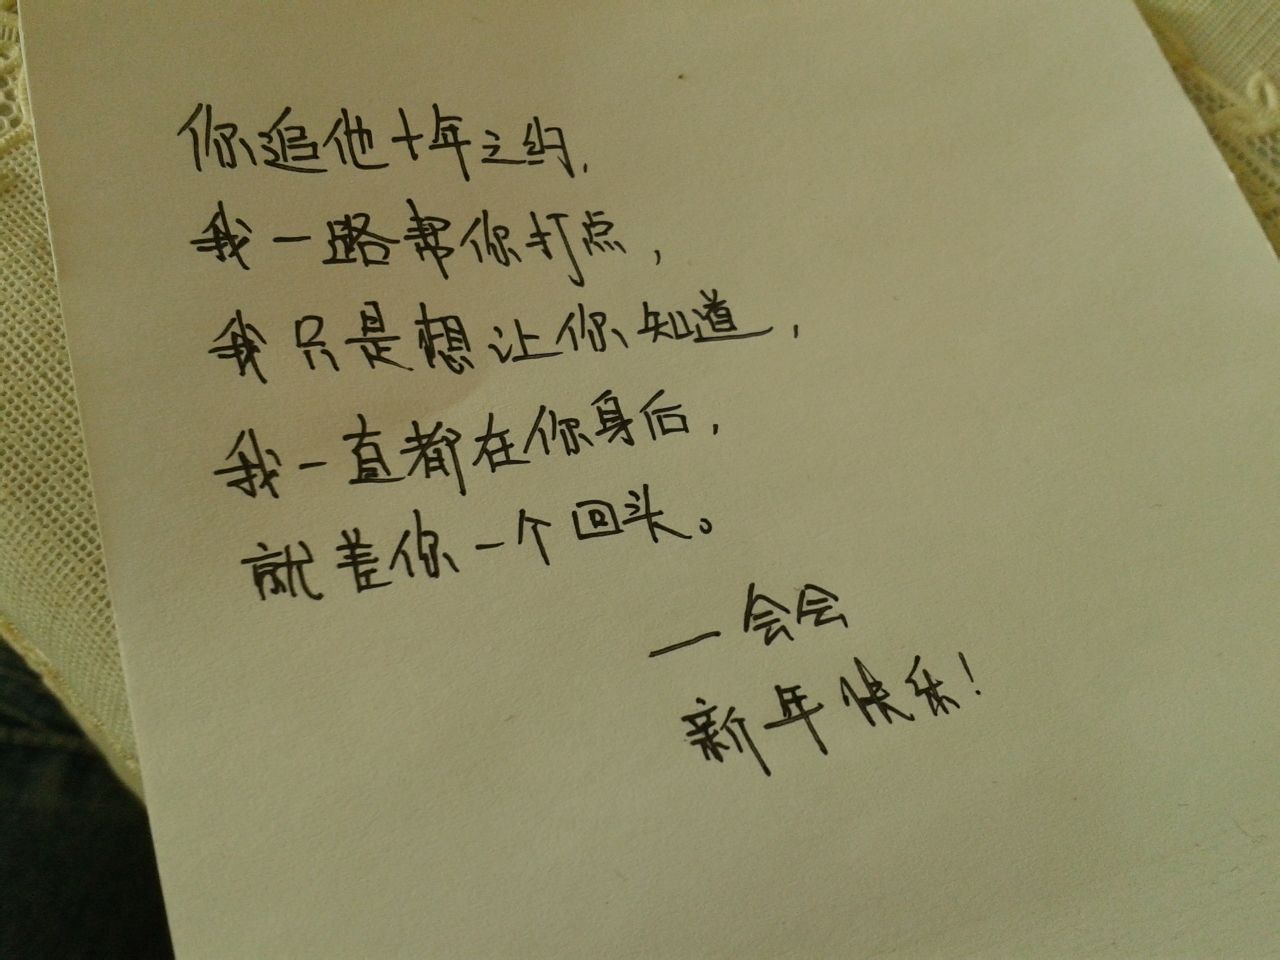 你追他十年之约,
我一路帮你打点,
我只是想让你知道,
我一直都在你身后,
就差你一个回头。
—会会
新年快乐!